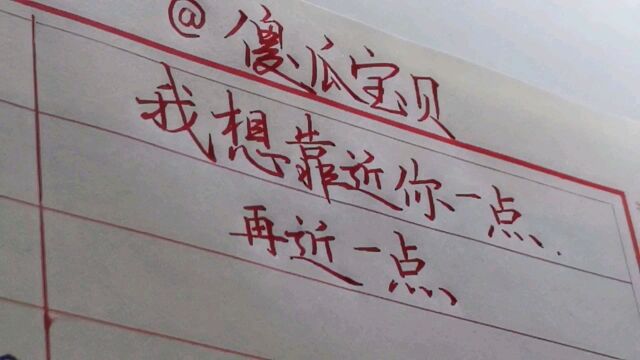 @傻瓜宝贝
我想靠近你一点、
再近一点